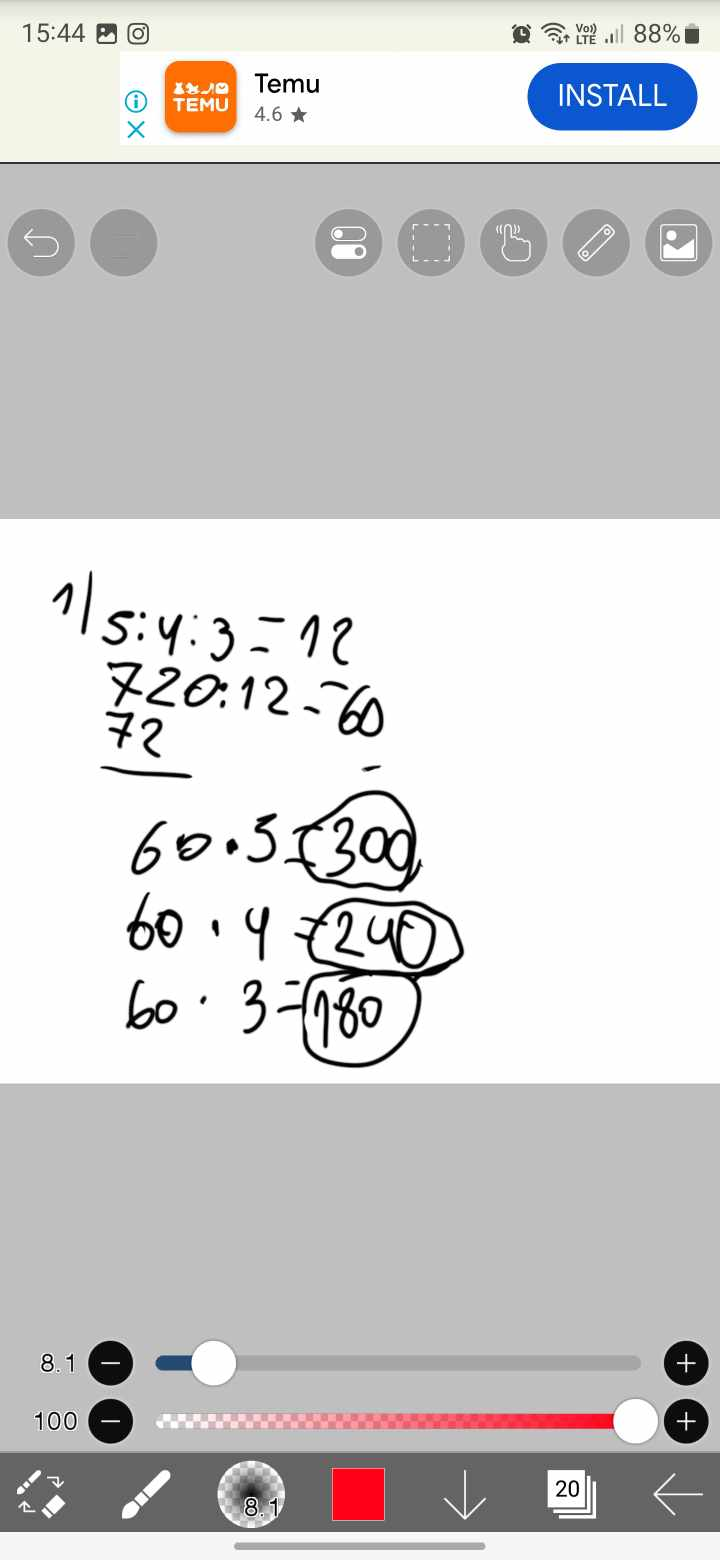 15:44 Vo)) LTE 88%
TEMU
Temu
4.6 ★
INSTALL
1/ 5:4:3 = 12
720:12 = 60
72
60 · 5 = 300
60 · 4 = 240
60 · 3 = 180
8.1
100
8.1
20